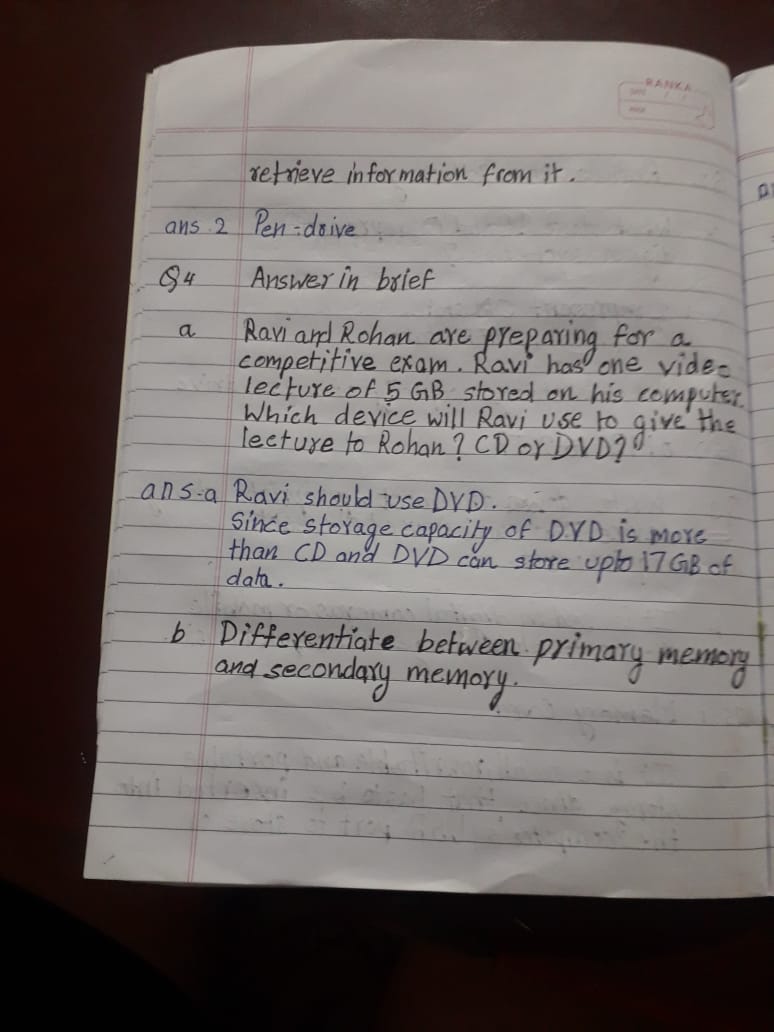 RANKA
retrieve information from it.
ans.2 Pen-drive
Q4 Answer in brief
a Ravi and Rohan are preparing for a
competitive exam. Ravi has one video
lecture of 5 GB stored on his computer.
Which device will Ravi use to give the
lecture to Rohan? CD or DVD?
ans.a Ravi should use DVD.
Since storage capacity of DVD is more
than CD and DVD can store upto 17 GB of
data.
b Differentiate between primary memory
and secondary memory.